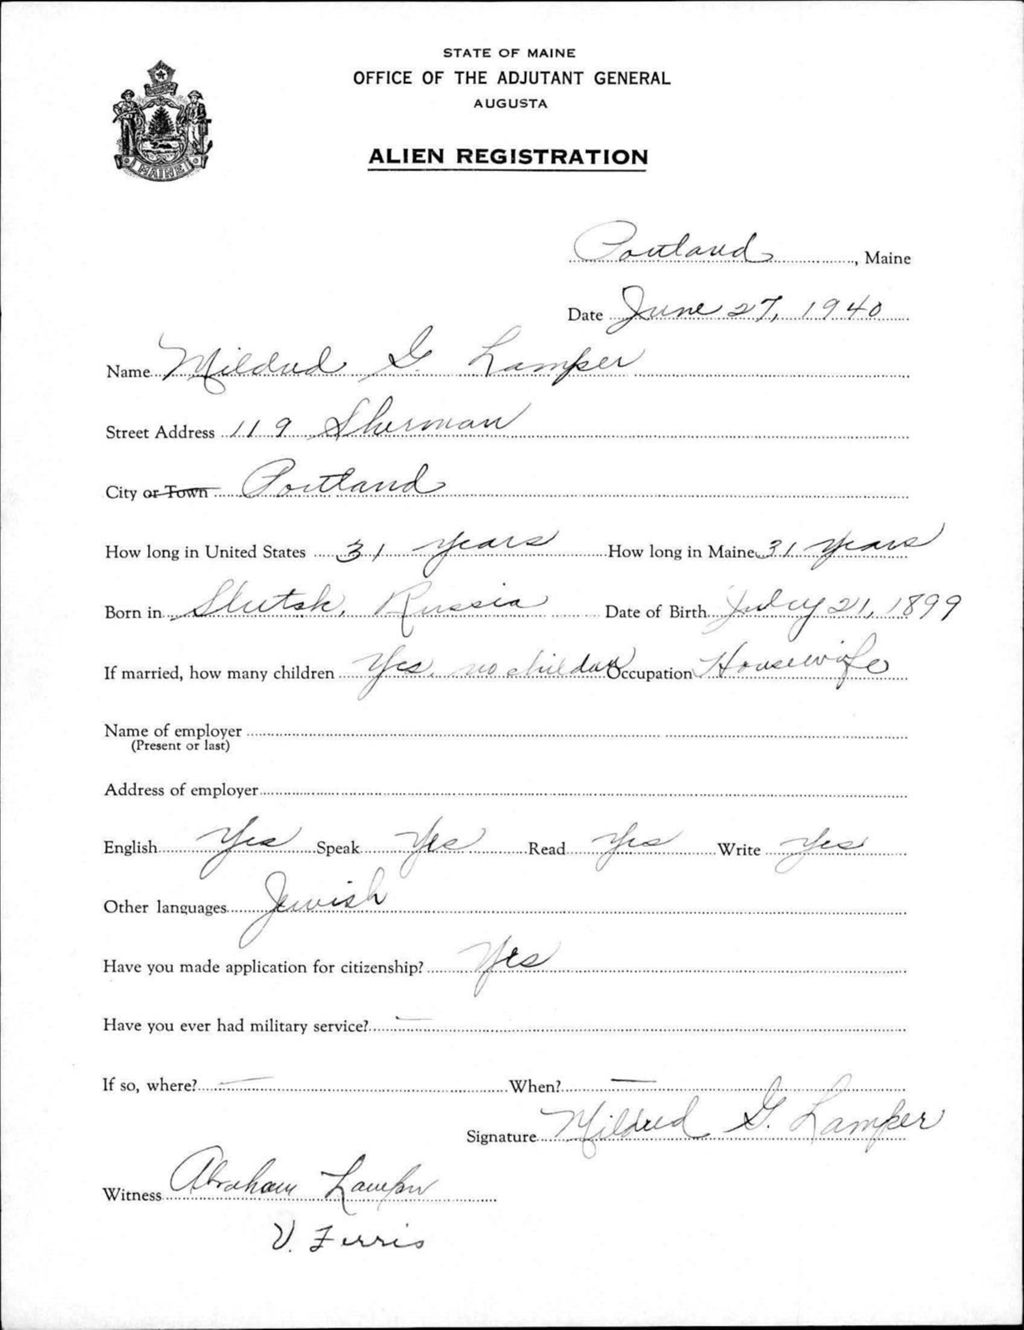 STATE OF MAINE
OFFICE OF THE ADJUTANT GENERAL
AUGUSTA
ALIEN REGISTRATION
MAINE
Portland, Maine
Date June 27, 1940
Name Mildred G. Lamper
Street Address 119 Sherman
City or Town Portland
How long in United States 31 years How long in Maine 31 years
Born in Slutsk, Russia Date of Birth July 21, 1899
If married, how many children Yes, no children Occupation Housewife
Name of employer
(Present or last)
Address of employer
English Yes Speak Yes Read Yes Write Yes
Other languages Jewish
Have you made application for citizenship? Yes
Have you ever had military service? —
If so, where? — When? —
Signature Mildred G. Lamper
Witness Abraham Lamper
V. Ferris